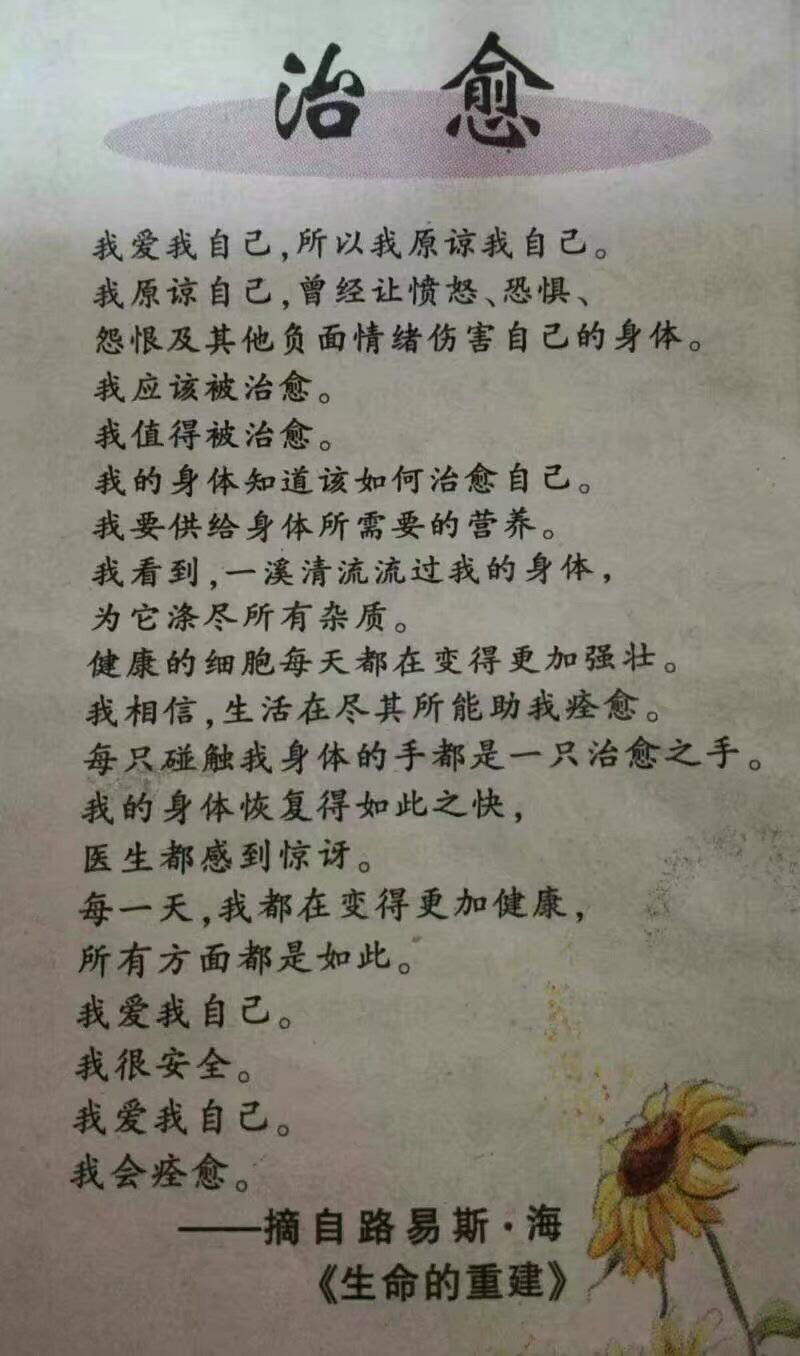 治愈
我爱我自己,所以我原谅我自己。
我原谅自己,曾经让愤怒、恐惧、
怨恨及其他负面情绪伤害自己的身体。
我应该被治愈。
我值得被治愈。
我的身体知道该如何治愈自己。
我要供给身体所需要的营养。
我看到,一溪清流流过我的身体,
为它涤尽所有杂质。
健康的细胞每天都在变得更加强壮。
我相信,生活在尽其所能助我痊愈。
每只碰触我身体的手都是一只治愈之手。
我的身体恢复得如此之快,
医生都感到惊讶。
每一天,我都在变得更加健康,
所有方面都是如此。
我爱我自己。
我很安全。
我爱我自己。
我会痊愈。
——摘自路易斯·海
《生命的重建》